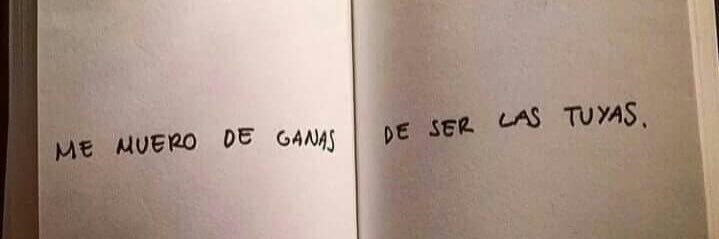 ME MUERO DE GANAS DE SER LAS TUYAS.